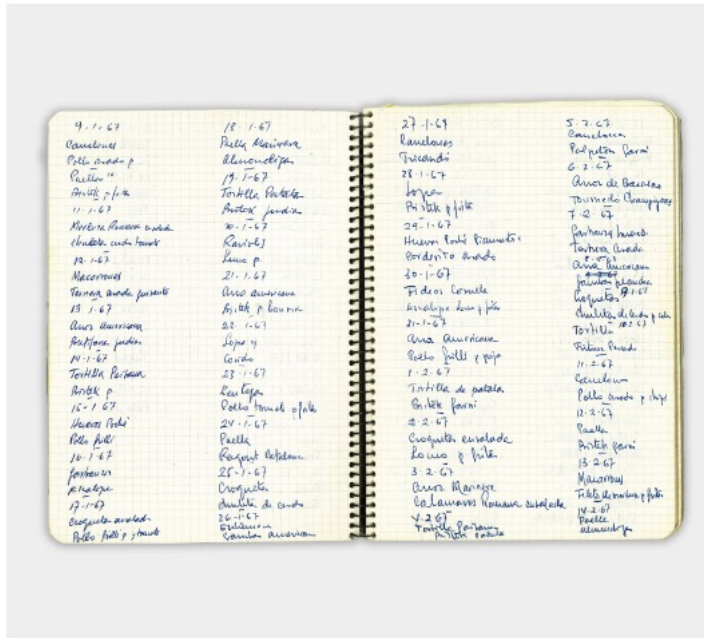 9-1-67
Canelones
Pollo asado p.
Paella
Bistek p fritas
11-1-67
Merluza Romana ensalada
chuleta cerdo tomate
12-1-67
Macarrones
Ternera asada guisante
13-1-67
Arroz americana
Butifarra judias
14-1-67
Tortilla Paisana
Bistek p.
15-1-67
Huevos Poché
Pollo grillé
16-1-67
Garbanzos
escalope
17-1-67
Croquetas ensalada
Pollo grillé p y tomate
18-1-67
Paella Marinera
Almondigas
19-1-67
Tortilla Patatas
Bistek judia
20-1-67
Ravioli
Lomo p.
21-1-67
Arroz americana
Bistek p
22-1-67
Sopa y
Cocido
23-1-67
Lentejas
Pollo tomate p fritas
24-1-67
Paella
Ragout Catalana
25-1-67
Croquetas
chuleta de cerdo
26-1-67
Entremes
Gambas americana
27-1-69
Canelones
Fricandó
28-1-67
Sopas
Bistek p frita
29-1-67
Huevos Poché
Corderito asado
30-1-67
Fideos Cazuela
Escalope
31-1-67
Arroz Americana
Pollo grillé p
1-2-67
Tortilla de patata
Bistek garni
2-2-67
Croquetas ensalada
Lomo p. fritas
3-2-67
Arroz Marinera
Calamares Romana ensalada
4-2-67
Tortilla Paisana
Bistek
5-2-67
Canelones
garni
6-2-67
Arroz de Bacalao
Tournedo Champiñones
7-2-67
Garbanzo
Ternera Asada
Arroz Americana
Gambas plancha
Croquetas 9-2-67
Chuletas de cerdo p
Tortilla 10-2-67
11-2-67
Canelones
Pollo asado p chips
12-2-67
Paella
Bistek garni
13-2-67
Macarrones
Filete de merluza p fritas
14-2-67
Paella
Almondigas